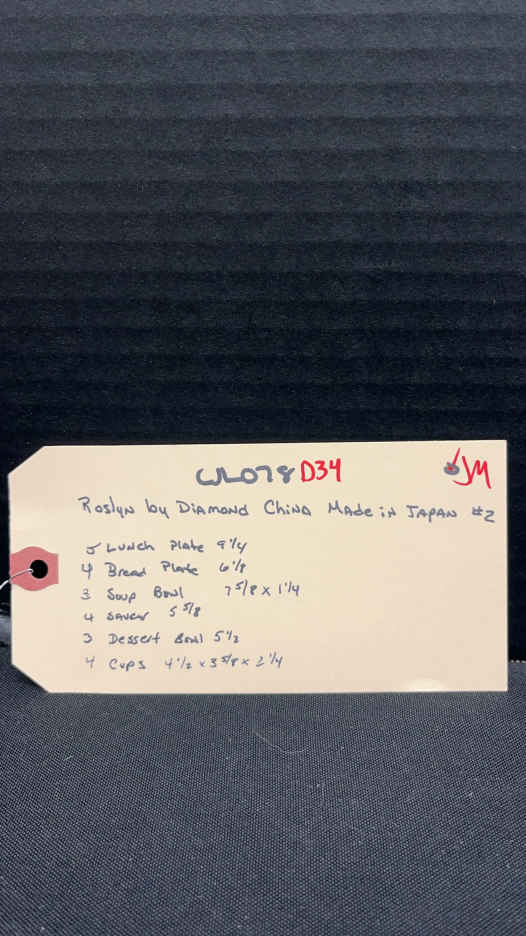 WL078 D34 JM
Roslyn by Diamond China Made in JAPAN #2
5 Lunch Plate 9 1/4
4 Bread Plate 6 1/8
3 Soup Bowl 7 5/8 x 1 1/4
4 Saucer 5 5/8
3 Dessert Bowl 5 1/2
4 Cups 4 1/2 x 3 5/8 x 2 1/4